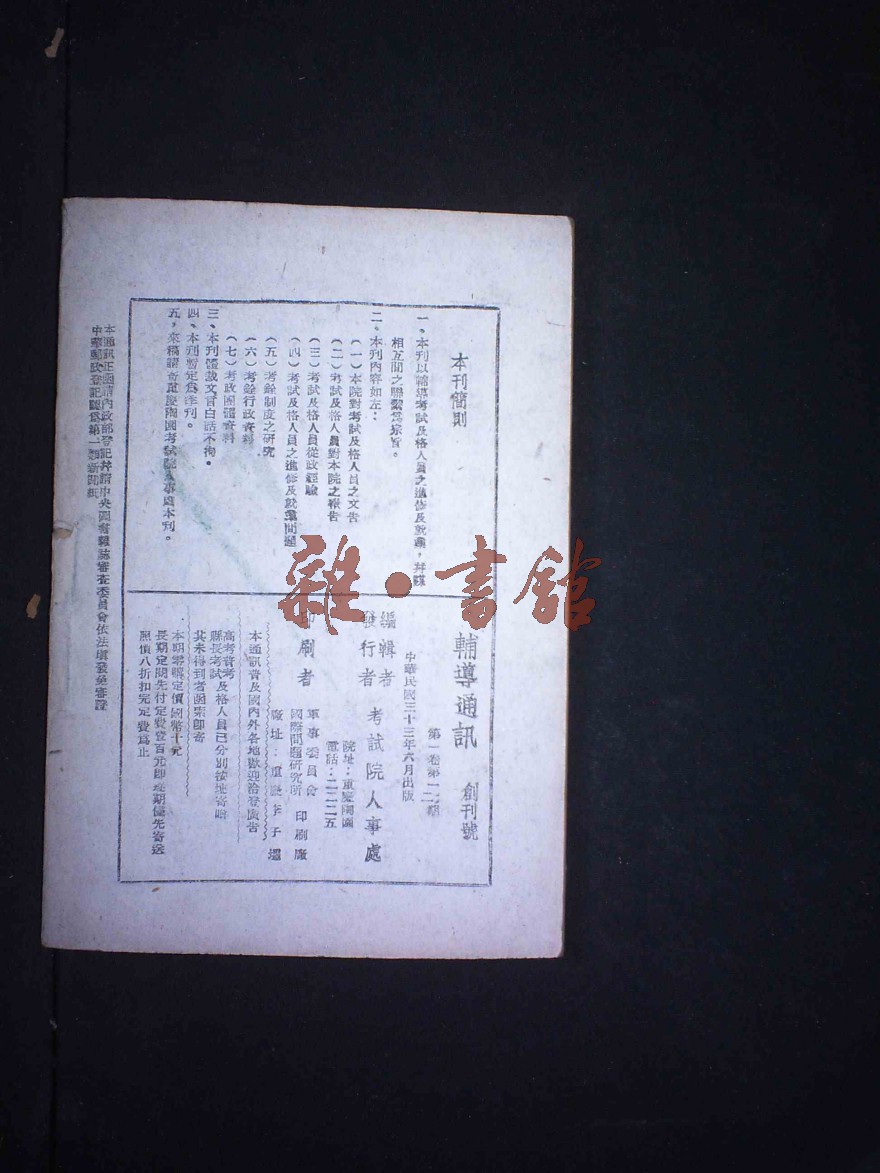 本刊簡則
一、本刊以輔導考試及格人員之進修及就業，并謀
相互間之聯繫為宗旨。
二、本刊內容如左：
（一）本院對考試及格人員之文告
（二）考試及格人員對本院之報告
（三）考試及格人員從政經驗
（四）考試及格人員之進修及就業問題
（五）考銓制度之研究
（六）考銓行政資料
（七）考政團體資料
三、本刊體裁文言白話不拘。
四、本刊暫定為季刊。
五、來稿請寄重慶陶園考試院人事處本刊。
輔導通訊 創刊號
第一卷第一二期
中華民國三十三年六月出版
編輯者
發行者 考試院人事處
院址：重慶陶園
電話：二二二二五
印刷者 軍事委員會
國際問題研究所 印刷廠
廠址：重慶李子壩
本通訊普及國內外各地歡迎洽登廣告
高考普考
縣長考試及格人員已分別按址寄贈
其未得到者函索即寄
本期零售定價國幣十元
長期定閱先付定費壹百元即逐期優先寄送
照價八折扣完定費為止
本通訊正函請內政部登記并請中央圖書雜誌審查委員會依法填發免審證
中華郵政登記認為第一類新聞紙
雜·書館